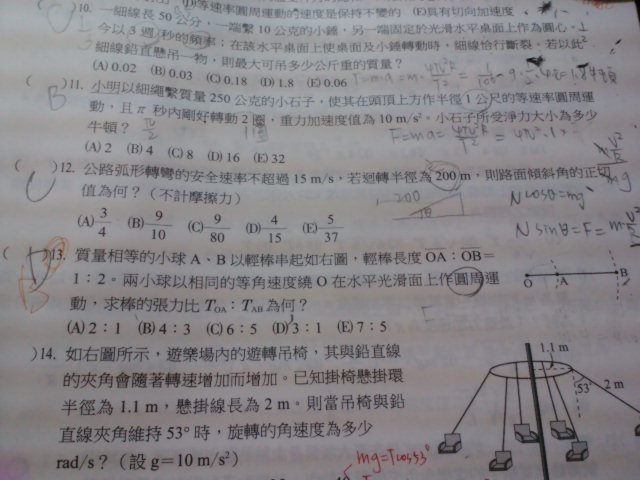 等速率圓周運動的速度是保持不變的 (E)具有切向加速度
10. 一細線長 50 公分，一端繫 10 公克的小錘，另一端固定於光滑水平桌面上作為圓心。
今以 3 週/秒的頻率，在該水平桌面上使桌面及小錘轉動時，細線恰行斷裂。若以此
細線鉛直懸吊一物，則最大可吊多少公斤重的質量？
(A) 0.02 (B) 0.03 (C) 0.18 (D) 1.8 (E) 0.06
( B )11. 小明以細繩繫質量 250 公克的小石子，使其在頭頂上方作半徑 1 公尺的等速率圓周運
動，且 π 秒內剛好轉動 2 圈，重力加速度值為 10 m/s²。小石子所受淨力大小為多少
牛頓？
(A) 2 (B) 4 (C) 8 (D) 16 (E) 32
F=ma=
( C )12. 公路弧形轉彎的安全速率不超過 15 m/s，若迴轉半徑為 200 m，則路面傾斜角的正切
值為何？（不計摩擦力）
(A) 3/4 (B) 9/10 (C) 9/80 (D) 4/15 (E) 5/37
200
Ncosθ=mg
Nsinθ=F=m
( )13. 質量相等的小球 A、B 以輕棒串起如右圖，輕棒長度 OA：OB＝
1：2。兩小球以相同的等角速度繞 O 在水平光滑面上作圓周運
動，求棒的張力比 T_OA：T_AB 為何？
(A) 2：1 (B) 4：3 (C) 6：5 (D) 3：1 (E) 7：5
O A B
)14. 如右圖所示，遊樂場內的遊轉吊椅，其與鉛直線
的夾角會隨著轉速增加而增加。已知掛椅懸掛環
半徑為 1.1 m，懸掛線長為 2 m。則當吊椅與鉛
直線夾角維持 53° 時，旋轉的角速度為多少
rad/s？（設 g＝10 m/s²）
1.1 m
53°
2 m
mg=Tcos53°